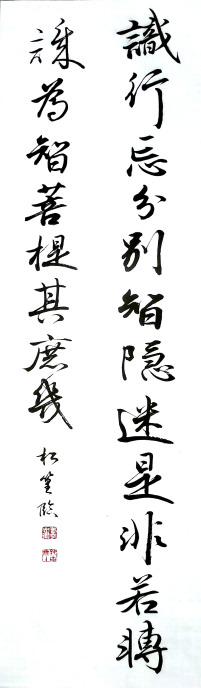 識行忘分別智隱迷是非若轉
識為智菩提其庶幾
松 臨